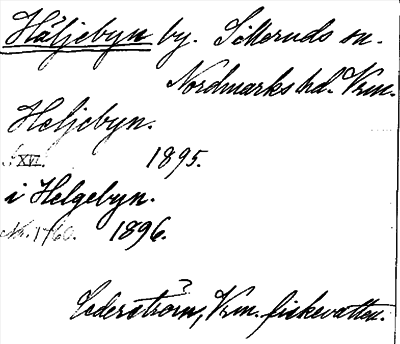 Häljebyn by. Silleruds sn.
Nordmarks hd. Vrm.
Heljebyn.
XVI. 1895.
i Helgebyn.
Nr. 1760. 1896.
3
Cederström, Vrm. fiskevatten.